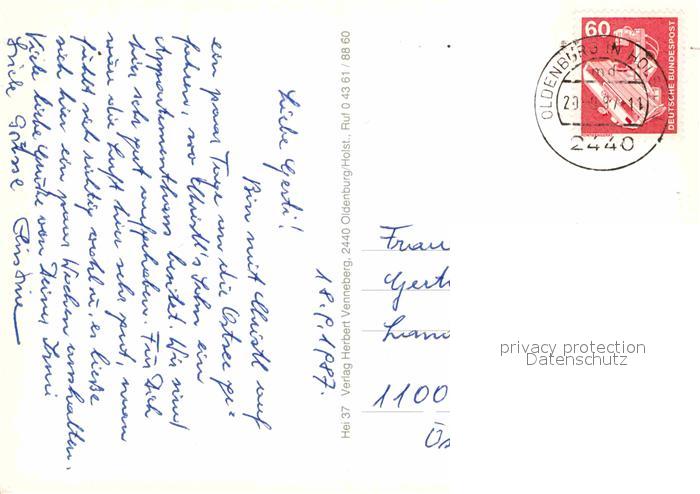 18.9.1987.
Liebe Gerti!
Bin mit Christl auf
ein paar Tage an die Ostsee ge=
fahren, wo Christl's Sohn ein
Appartementhaus besitzt. Wir sind
hier sehr gut aufgehoben. Für Dich
wäre die Luft hier sehr gut, man
fühlt sich richtig wohl u. es ließe
sich hier ein paar Wochen aushalten.
Viele liebe Grüße von Deiner Irmi
Liebe Grüsse
Hei 37 Verlag Herbert Venneberg, 2440 Oldenburg/Holst., Ruf 0 43 61 / 88 60
60
DEUTSCHE BUNDESPOST
OLDENBURG IN HOLST
md
2440
Frau
Gert
1100
Ös
privacy protection
Datenschutz